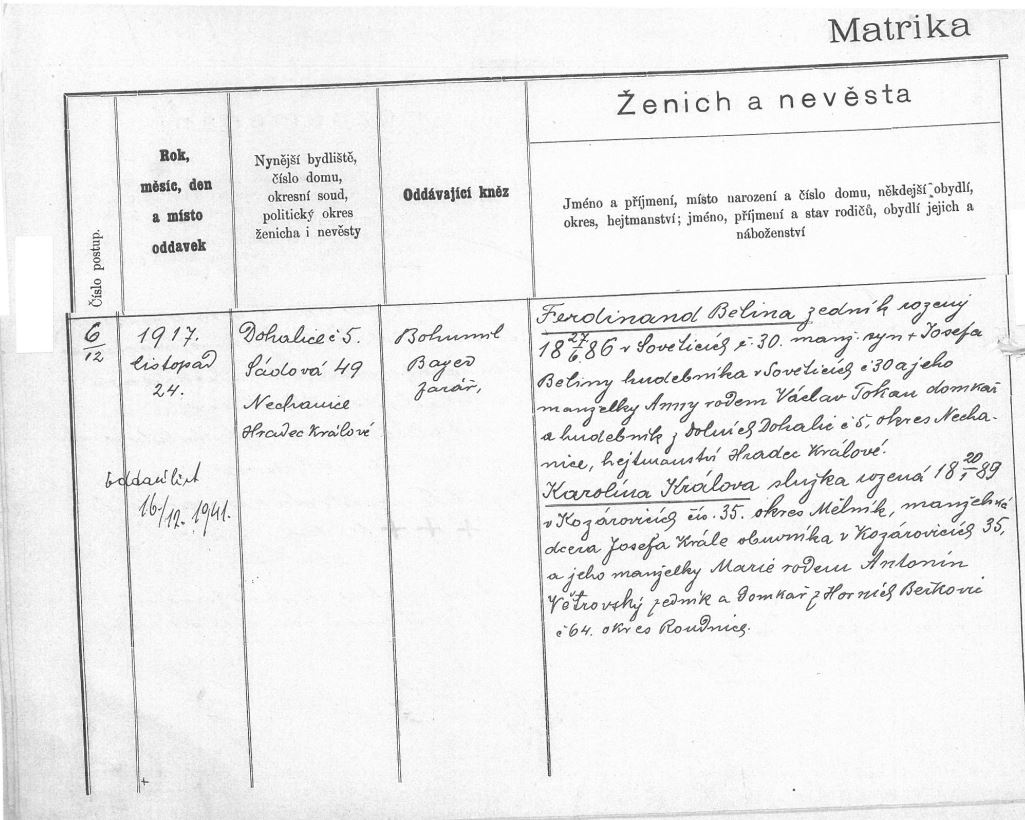 Matrika
Číslo postup.
Rok,
měsíc, den
a místo
oddavek
Nynější bydliště,
číslo domu,
okresní soud,
politický okres
ženicha i nevěsty
Oddávající kněz
Ženich a nevěsta
Jméno a příjmení, místo narození a číslo domu, někdejší obydlí,
okres, hejtmanství; jméno, příjmení a stav rodičů, obydlí jejich a
náboženství
6
12
1917.
listopad
24.
oddací list
16/12. 1941.
Dohalice č 5.
Sádová 49
Nechanice
Hradec Králové
Bohumil
Bayer
farář,
Ferdinand Bělina zedník rozený
18 27/6. 86 v Sověticích č 30. manž. syn + Josefa
Běliny hudebníka v Sověticích č 30 a jeho
manželky Anny rodem Václav Tokan domkař
a hudebník z Dolních Dohalic č 5, okres Necha-
nice, hejtmanství Hradec Králové.
Karolína Králova služka rozená 18 20/1 89
v Kozárovicích čís. 35. okres Mělník, manželská
dcera Josefa Krále obuvníka v Kozárovicích 35,
a jeho manželky Marie rodem Antonín
Větrovský zedník a domkař z Horních Beřkovic
č 64. okres Roudnice.